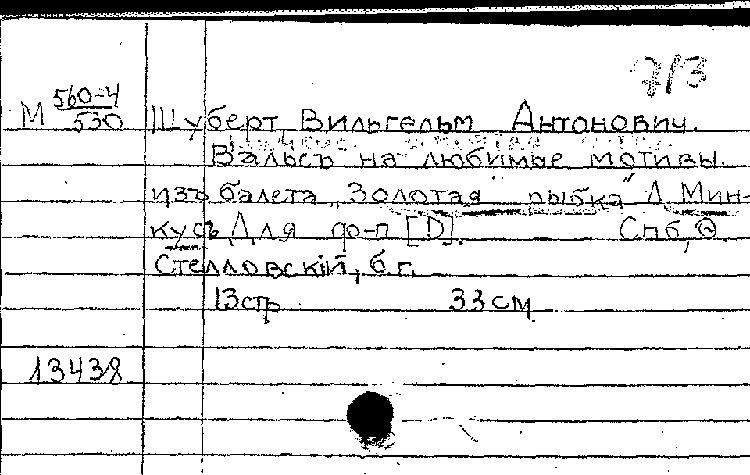 7/3
М 560-4/530 Шуберт, Вильгельм Антонович.
Вальсъ на любимые мотивы
изъ балета „Золотая рыбка" Л. Мин-
кусъ Для ф-п [D]. Спб, Ѳ.
Стелловскій, б.г.
13 стр 33 см
13438